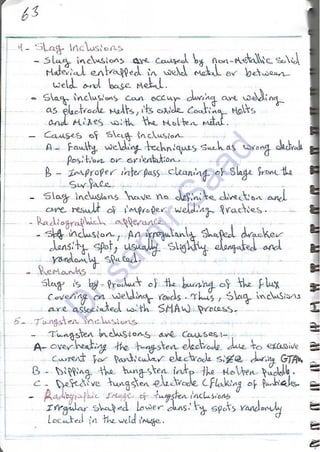 63
4 - Slag Inclusions
- Slag inclusions are caused by non-Metallic Solid
Material entrapped in weld metal or between
weld and base Metal.
- Slag inclusions can occur during arc welding
as electrode Melts, its oxide Coating Melts
and Mixes with the Molten Metal.
- Causes of Slag Inclusion
A - Faulty Welding techniques Such as wrong electrode
Position or orientation.
B - Improper interpass Cleaning of Slage from the
Surface.
- Slag inclusions have no definite direction and
are result of improper welding Practies.
- Radiographich apperance
- Slag inclusion, An irregularly Shaped dracker
density spot, usually Slightly elongated and
randomly spaced.
- Remarks
Slag is by-Product of the burning of the flux
Covering on Welding roads. Thus, Slag inclusions
are associated with SMAW process.
5 - Tungsten inclusions
- Tungsten Inclusions are Causes:-
A - overheating the tungsten electrode due to exessive
Current for Particular electrode size during GTAW
B - Dipping the tungsten into the Molten Puddle.
C - Defective tungsten electrode (flaking of Particles
- Radiographic Image of tungsten inclusions
Irregular Shaped lower density spots randomly
located in the weld image.
Saad